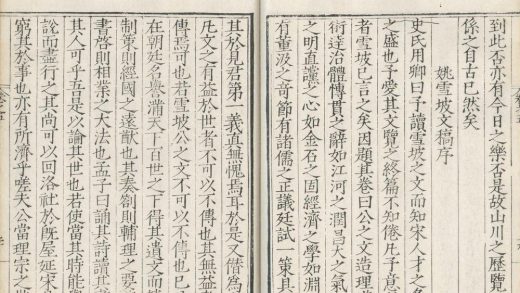 到此否亦有今日之樂否是故山川之歷覽
係之自古已然矣
姚雪坡文稿序
史氏用卿曰予讀雪坡之文而知宋人才之
之盛也予愛其文覽之終篇不知倦凡予意
者雪坡已言之矣因題其卷曰公之文造理
衍達治體博貫之辭如江河之潤昌大之氣
之明直讜之心如金石之固經濟之學如淵
有董汲之奇節有諸儒之正議廷試一策具
其於見君第一義直無愧焉耳於是又僣爲
凡文之有益於世者不可以不傳也其無益
傳焉可也若雪坡公之文不可以不傳也已
在朝姓名譽滿天下百世之下得其遺文而
制策則經國之遠猷也其奏劄則輔理之要
書啓則相業之大法也孟子曰誦其詩讀其
其人可乎吾是以論其世也若使當其時能
說而盡行之其尚可以回洛社於旣屋延宋
窮其於事也亦有所濟乎嗟夫公當理宗之